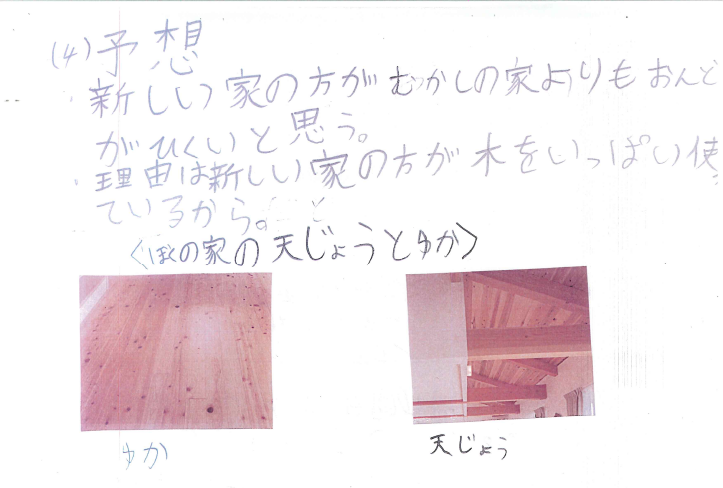 (4)予想
・新しい家の方がむかしの家よりもおんど
がひくいと思う。
・理由は新しい家の方が木をいっぱい使っ
ているから。
〈ぼくの家の天じょうとゆか〉
ゆか
天じょう